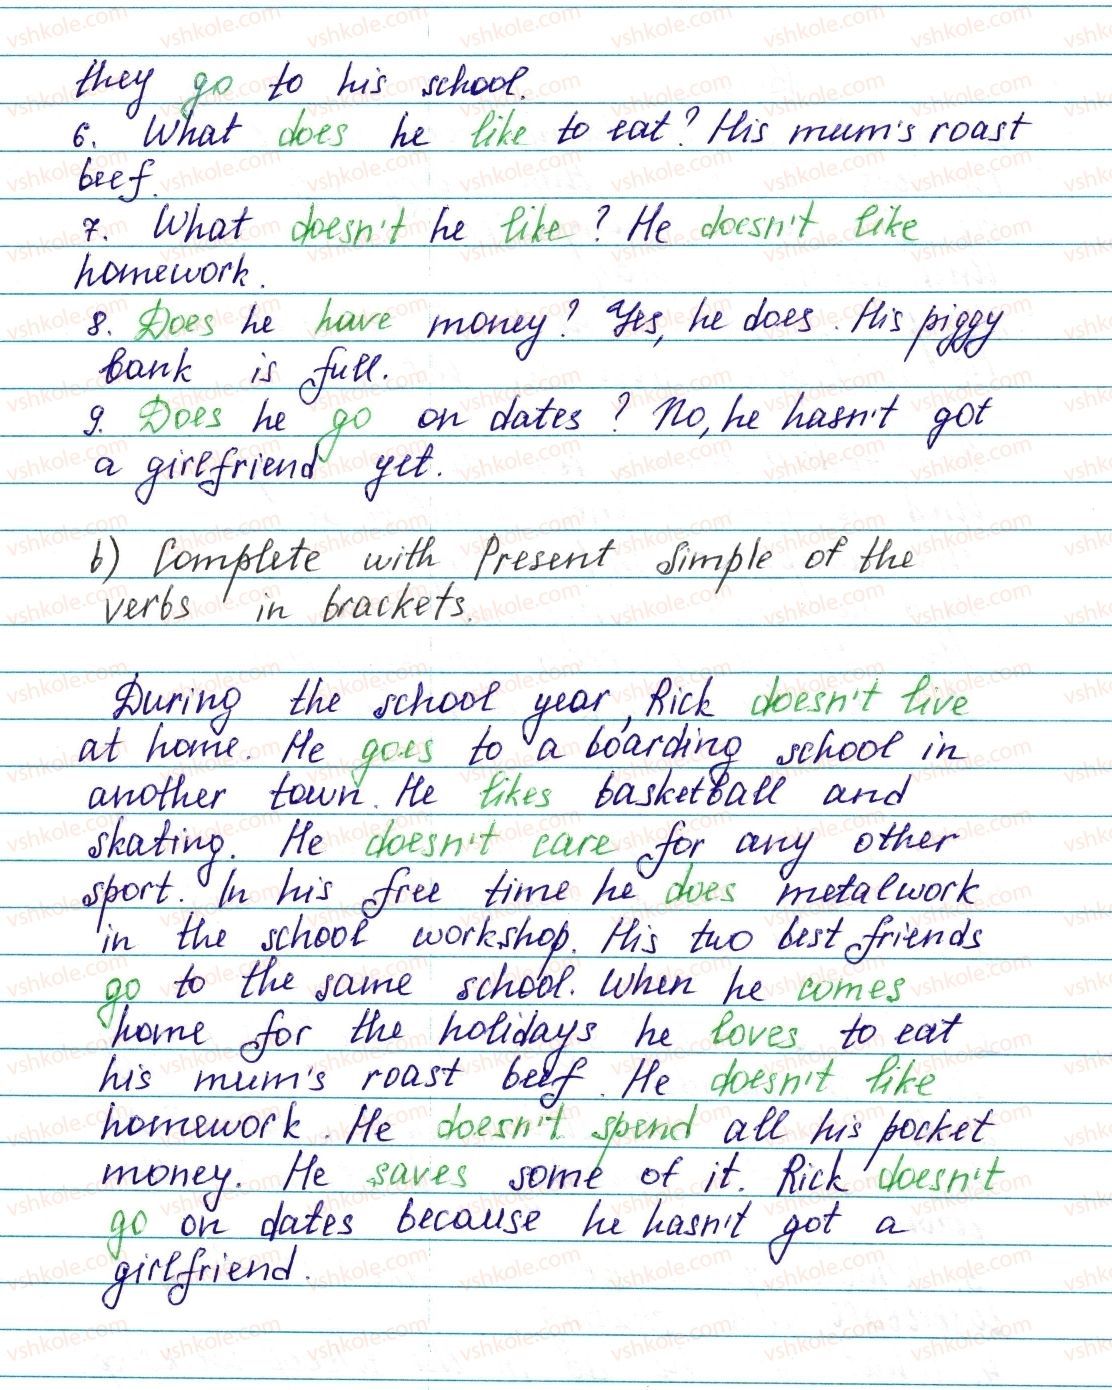 they go to his school.
6. What does he like to eat? His mum's roast
beef.
7. What doesn't he like? He doesn't like
homework.
8. Does he have money? Yes, he does. His piggy
bank is full.
9. Does he go on dates? No, he hasn't got
a girlfriend yet.
b) Complete with Present Simple of the
verbs in brackets.
During the school year, Rick doesn't live
at home. He goes to a boarding school in
another town. He likes basketball and
skating. He doesn't care for any other
sport. In his free time he does metalwork
in the school workshop. His two best friends
go to the same school. When he comes
home for the holidays he loves to eat
his mum's roast beef. He doesn't like
homework. He doesn't spend all his pocket
money. He saves some of it. Rick doesn't
go on dates because he hasn't got a
girlfriend.